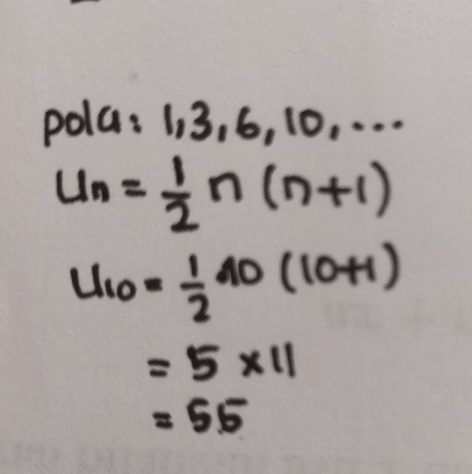 pola: 1,3,6,10,...
Un = 1/2 n (n+1)
U10 = 1/2 10 (10+1)
= 5 x 11
= 55